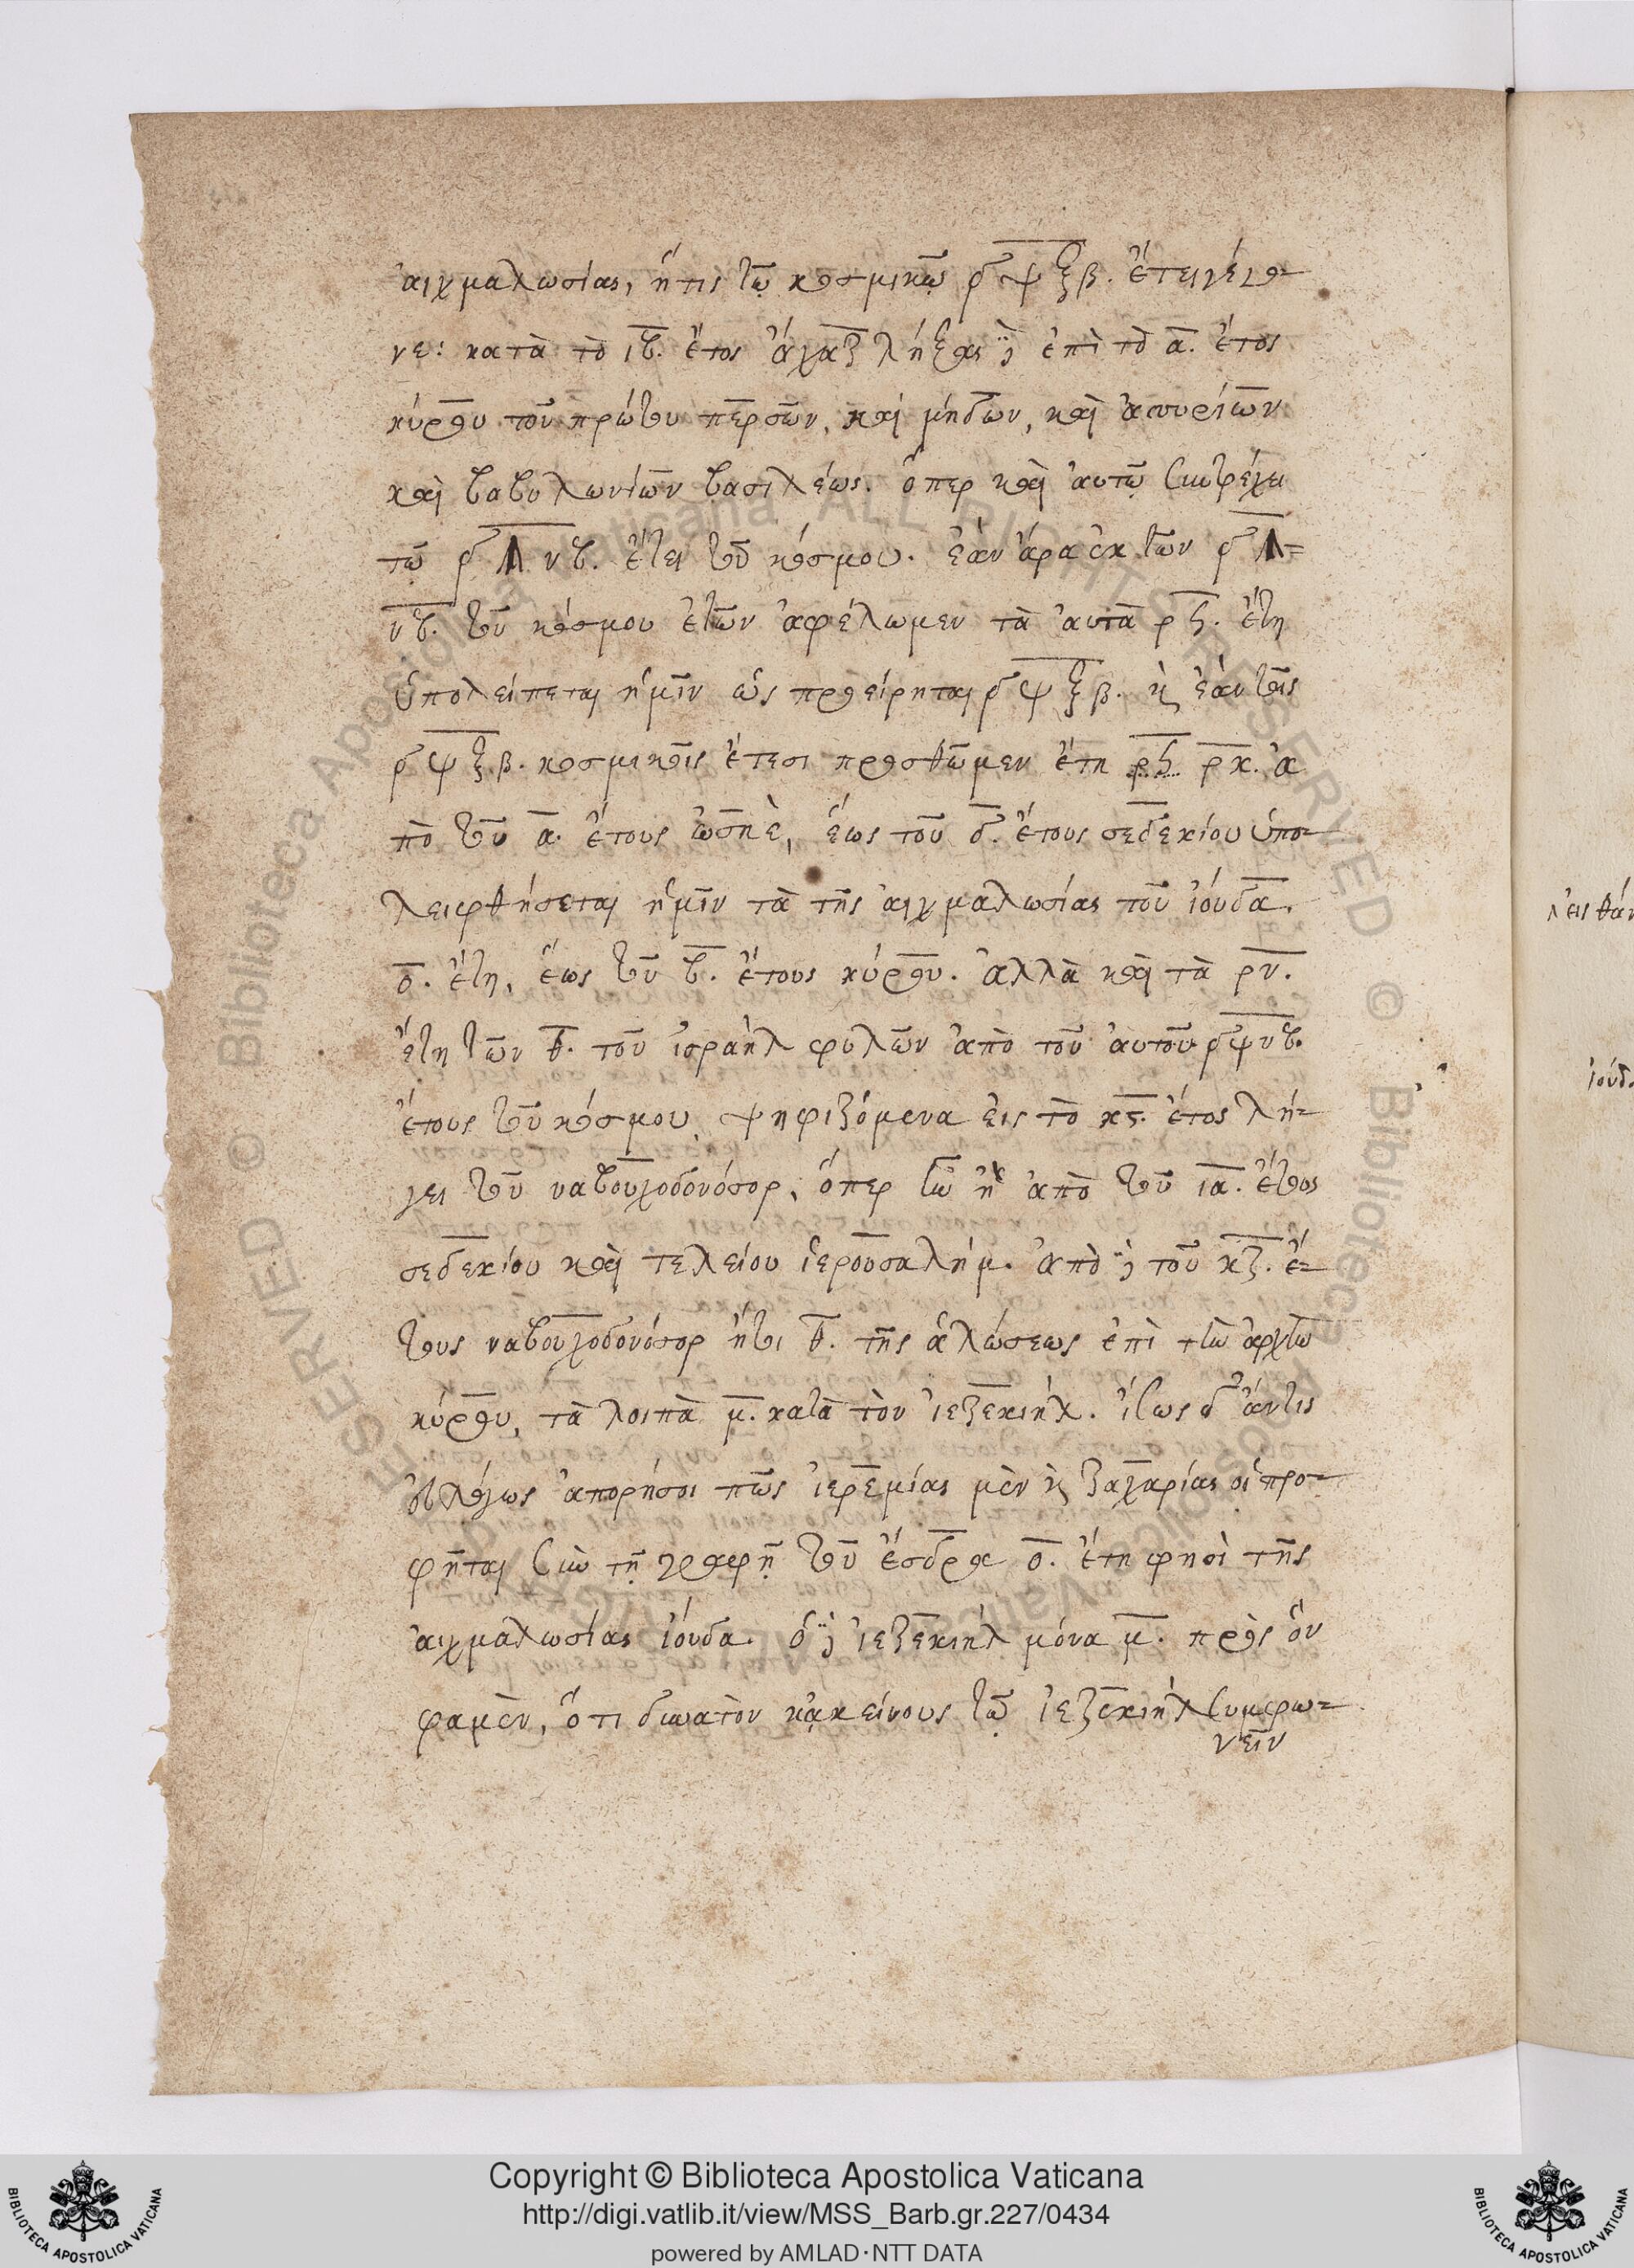 αἰχμαλωσίας, ἥτις τῷ κοσμικῷ ͵δψξβ. ἔτει γέγο=
νε: κατὰ τὸ ιβ. ἔτος ἄχαζ λήξας δὲ ἐπὶ τὸ α. ἔτος
κύρου τοῦ πρώτου περσῶν, καὶ μήδων, καὶ ἀσσυρίων
καὶ βαβυλωνίων βασιλέως. ὅπερ καὶ αὐτῷ συντρέχει
τῷ ͵δϡνβ. ἔτει τοῦ κόσμου. ἐὰν ἄρα ἐκ τῶν ͵δϡ=
νβ. τοῦ κόσμου ἐτῶν ἀφέλωμεν τὰ αὐτὰ ρϟ. ἔτη
ὑπολείπεται ἡμῖν ὡς προείρηται ͵δψξβ. κ ἐὰν τοῖς
͵δψξβ. κοσμικοῖς ἔτεσι προσθῶμεν ἔτη ρϟ ρκ. ἀ
πὸ τοῦ α. ἔτους ὠσηὲ, ἕως τοῦ δ. ἔτους σεδεκίου ὑπο=
λειφθήσεται ἡμῖν τὰ τῆς αἰχμαλωσίας τοῦ ἰούδα.
ο. ἔτη, ἕως τοῦ β. ἔτους κύρου. ἀλλὰ καὶ τὰ ρν.
ἔτη τῶν θ. τοῦ ἰσραὴλ φυλῶν ἀπὸ τοῦ αὐτοῦ ͵δψνβ.
ἔτους τοῦ κόσμου ψηφιζόμενα εἰς τὸ κϛ. ἔτος λή=
γει τοῦ ναβουχοδονόσορ, ὅπερ ἦν η ἀπὸ τοῦ ια. ἔτος
σεδεκίου καὶ τελείου ἱερουσαλήμ. ἀπὸ δὲ τοῦ κζ. ἔ=
τους ναβουχοδονόσορ ἤτοι θ. τῆς ἁλώσεως ἐπὶ τὴν ἀρχὴν
κύρου, τὰ λοιπὰ μ. κατὰ τὸν ἰεζεκιήλ. ἴσως δ' ἄν τις
εὐλόγως ἀπορήσοι πῶς ἰερεμίας μὲν κ ζαχαρίας οἱ προ=
φῆται σὺν τῇ γραφῇ τοῦ ἔσδρα ο. ἔτη φησὶ τῆς
αἰχμαλωσίας ἰούδα. ὁ δὲ ἰεζεκιὴλ μόνα μ. πρὸς ὃν
φαμὲν, ὅτι δυνατὸν κἀκείνους τῷ ἰεζεκιὴλ συμφω=
νεῖν
λεις θάν
ἰούδ
Copyright © Biblioteca Apostolica Vaticana
http://digi.vatlib.it/view/MSS_Barb.gr.227/0434
powered by AMLAD·NTT DATA